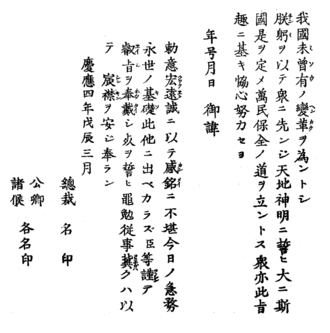 我國未曾有ノ變革ヲ為ントシ
朕躬ヲ以テ衆ニ先ンシ天地神明ニ誓ヒ大ニ斯
國是ヲ定メ萬民保全ノ道ヲ立ントス衆亦此旨
趣ニ基キ恊心努力セヨ
年号月日　御諱
勅意宏遠誠ニ以テ感銘ニ不堪今日ノ急務
永世ノ基礎此他ニ出ヘカラス臣等謹テ
叡旨ヲ奉戴シ死ヲ誓ヒ黽勉從事冀クハ以
テ宸襟ヲ安シ奉ラン
慶應四年戊辰三月
總裁　名　印
公卿
諸侯　各名印